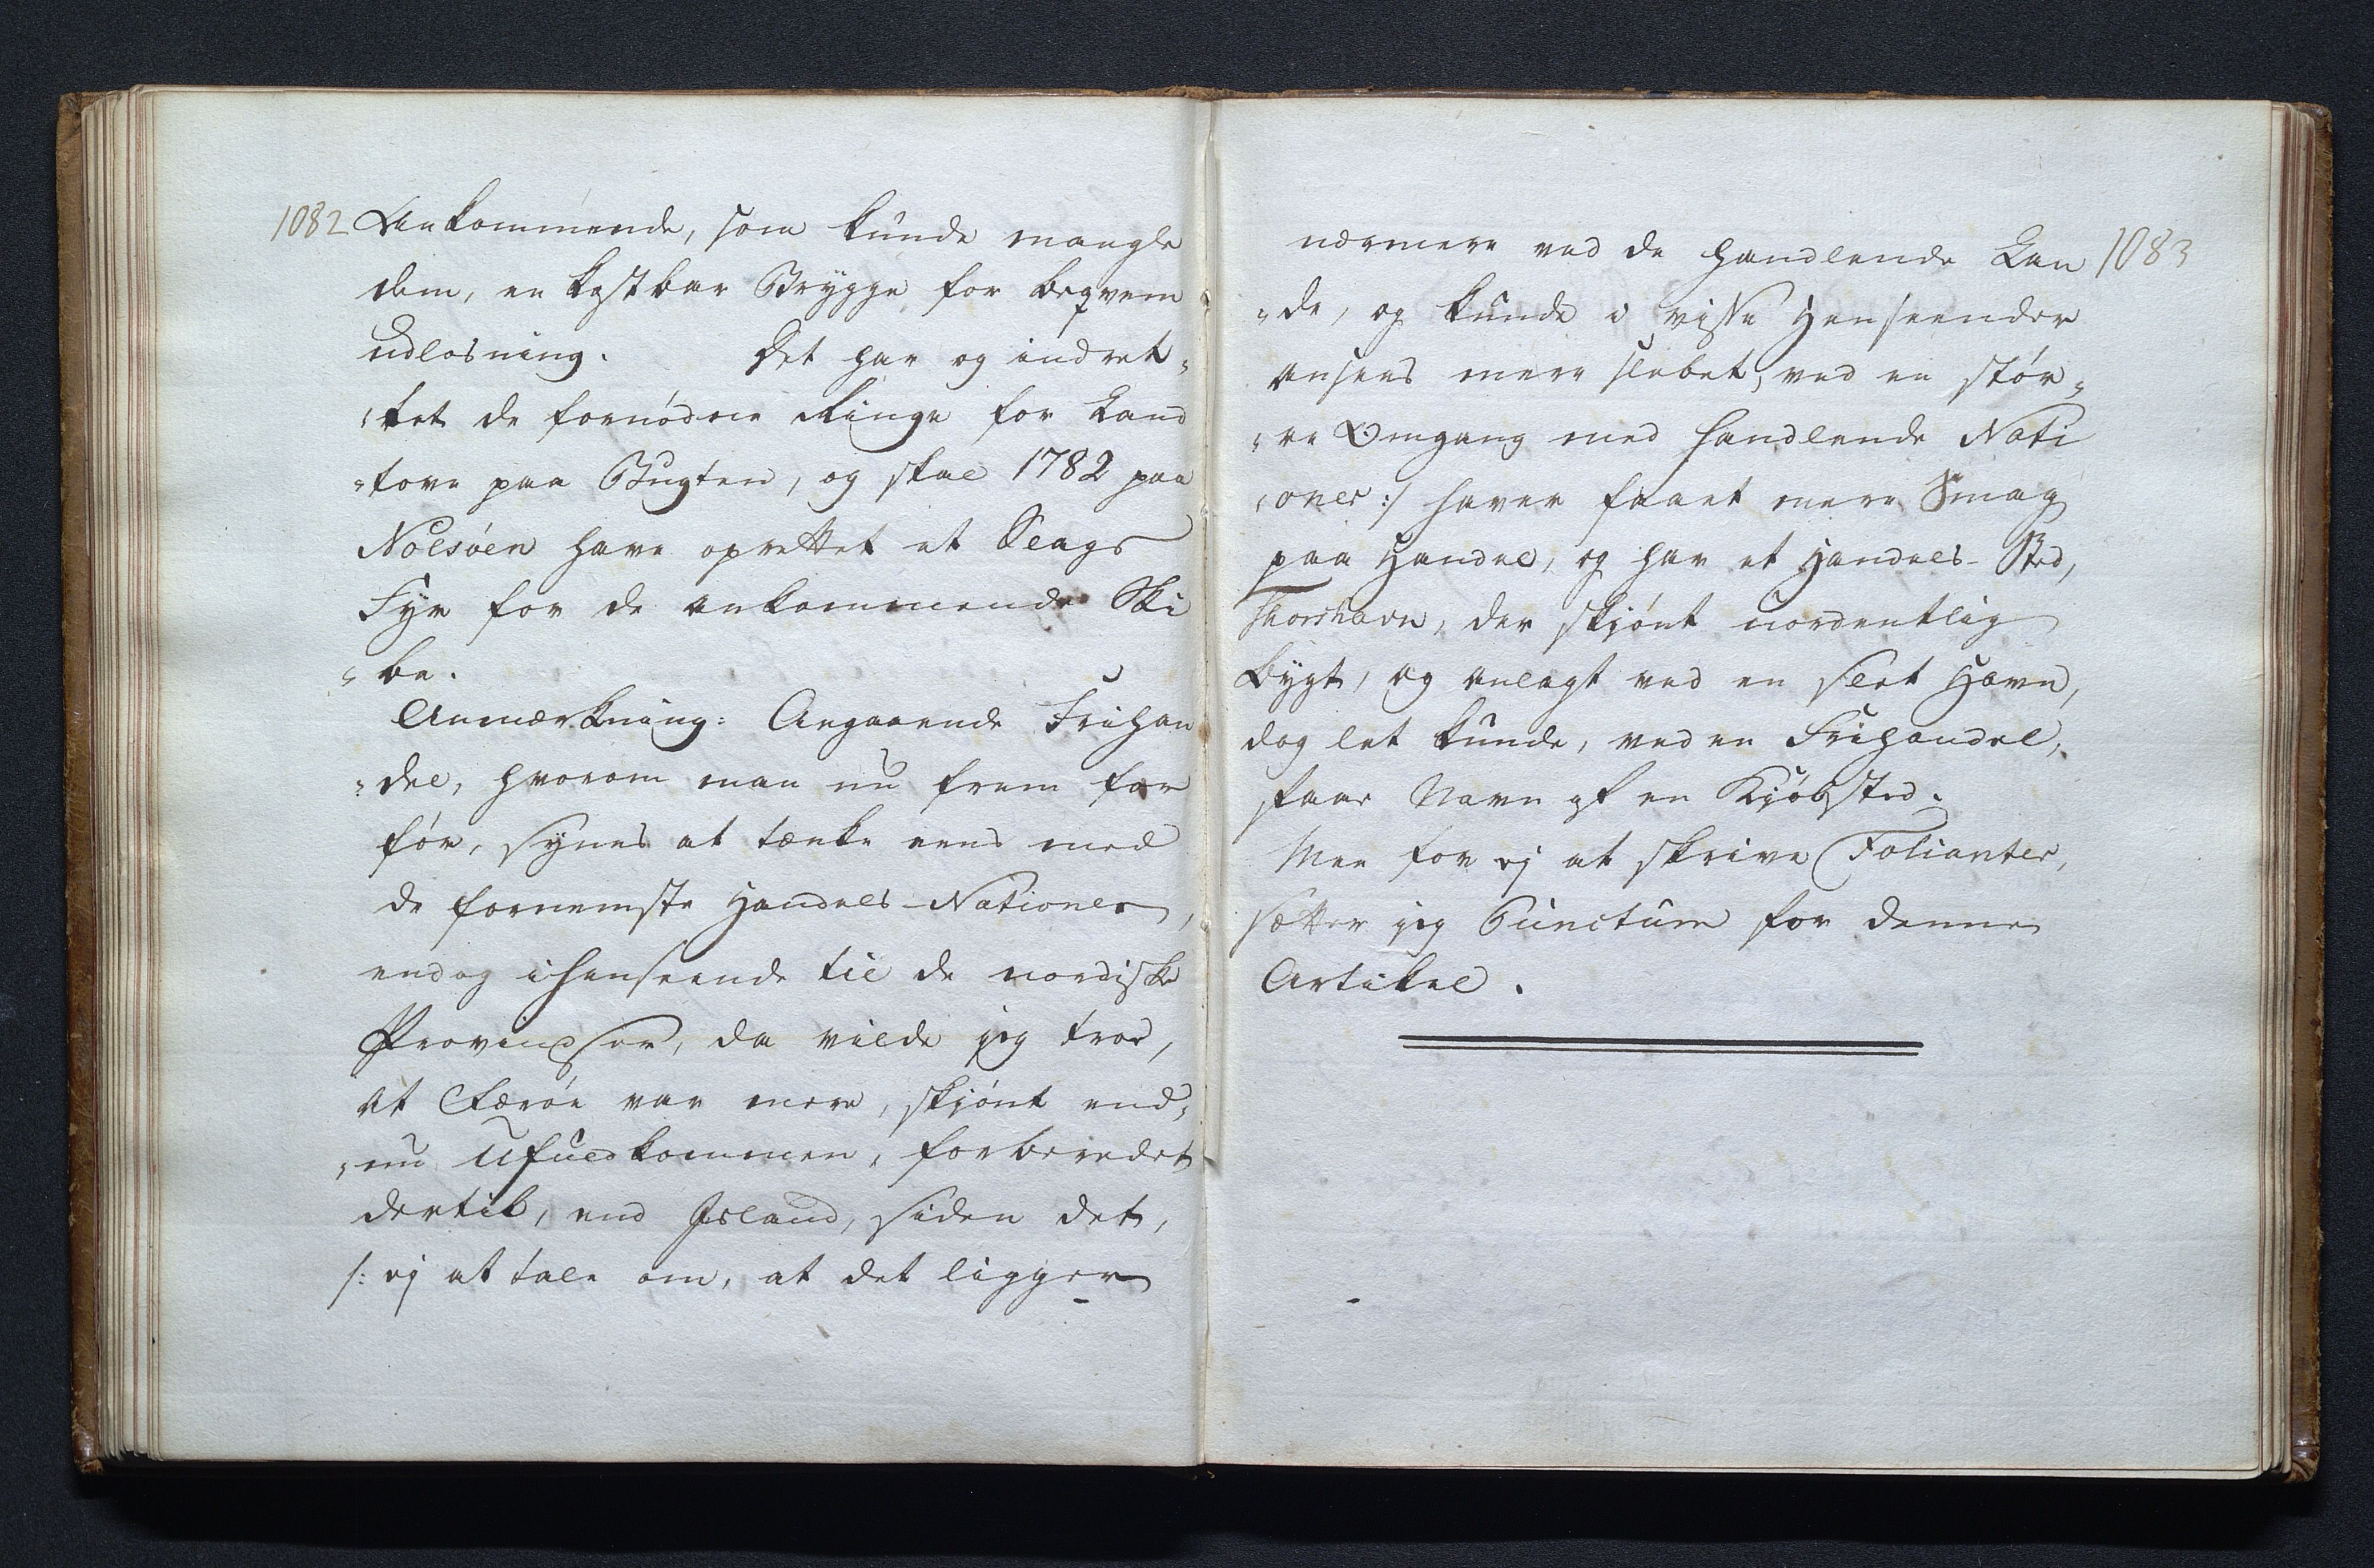 1082
Ankommende, som kunde mangle
dem, en kostbar Brygge for beqvem
udlosning. Det har og indret„
„tet de fornödne Ringe for Land
„tove paa Bugten, og skal 1782 paa
Nolsöen have oprettet et Slags
Fyr for de ankommende Ski
„be.
Anmærkning: Angaaende Frihan
„del, hvorom man nu frem for
før, synes at tænke eens med
de fornemste Handels-Nationer,
endog i henseende til de nordiske
Provindser, da vilde jeg troe,
at Færöe var mere, skjönt end„
„nu Ufuldkommen, forberedet
dertil, end Island, siden det,
/: ej at tale om, at det ligger
1083
nærmere ved de handlende Lan
„de, og kunde i visse Henseender
ansees mere slebet, ved en stör„
„re Omgang med handlende Nati
„oner :/ haver faaet mere Smag
paa Handel, og har et Handels-Sted,
Thorshavn, der skjönt uordentlig
bygt, og anlagt ved en slet Havn,
dog let kunde, ved en Frihandel,
faae Navn af en Kjöbsted.
Men for ej at skrive Folianter,
sætter jeg Punctum for denne
Artikel.